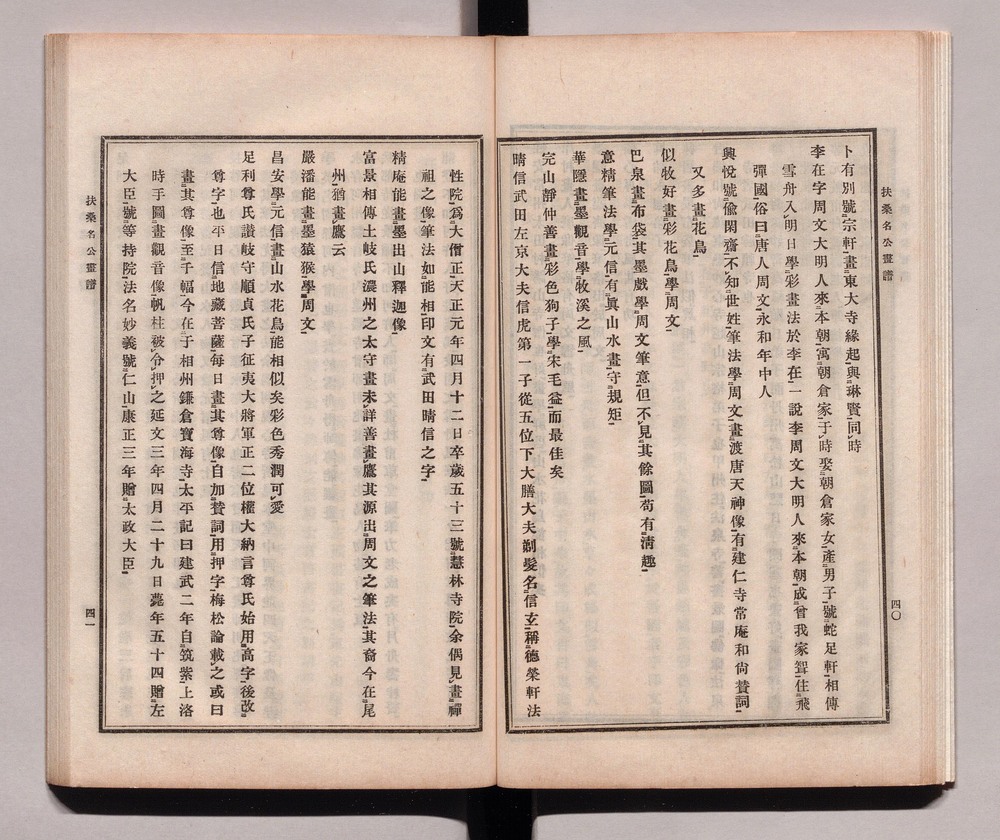 扶桑名公畫譜
四〇
卜有別號宗軒畫東大寺緣起與琳賢同時
李在字周文大明人來本朝寓朝倉家于時娶朝倉家女產男子號蛇足軒相傳
雪舟入明日學彩畫法於李在一說李周文大明人來本朝成曾我家聟住飛
彈國俗曰唐人周文永和年中人
興悅號儉閑齋不知世姓筆法學周文畫渡唐天神像有建仁寺常庵和尙贊詞
又多畫花鳥
似牧好畫彩花鳥學周文
巴泉畫布袋其墨戲學周文筆意但不見其餘圖苟有淸趣
意精筆法學元信有眞山水畫守規矩
華隱畫墨觀音學牧溪之風
完山靜仲善畫彩色狗子學宋毛益而最佳矣
晴信武田左京大夫信虎第一子從五位下大膳大夫剃髮名信玄稱德榮軒法
性院爲大僧正天正元年四月十二日卒歲五十三號慧林寺院余偶見畫禪
祖之像筆法如能相印文有武田晴信之字
精庵能畫墨出山釋迦像
富景相傳土岐氏濃州之太守畫未詳善畫鷹其源出周文之筆法其裔今在尾
州猶畫鷹云
嚴潘能畫墨猿猴學周文
昌安學元信畫山水花鳥能相似矣彩色秀潤可愛
足利尊氏讃岐守順貞氏子征夷大將軍正二位權大納言尊氏始用高字後改
尊字也平日信地藏菩薩每日畫其尊像自加贊詞用押字梅松論載之或曰
畫其尊像至千幅今在于相州鎌倉寶海寺太平記曰建武二年自筑紫上洛
時手圖畫觀音像帆柱被令押之延文三年四月二十九日薨年五十四贈左
大臣號等持院法名妙義號仁山康正三年贈太政大臣
扶桑名公畫譜
四一